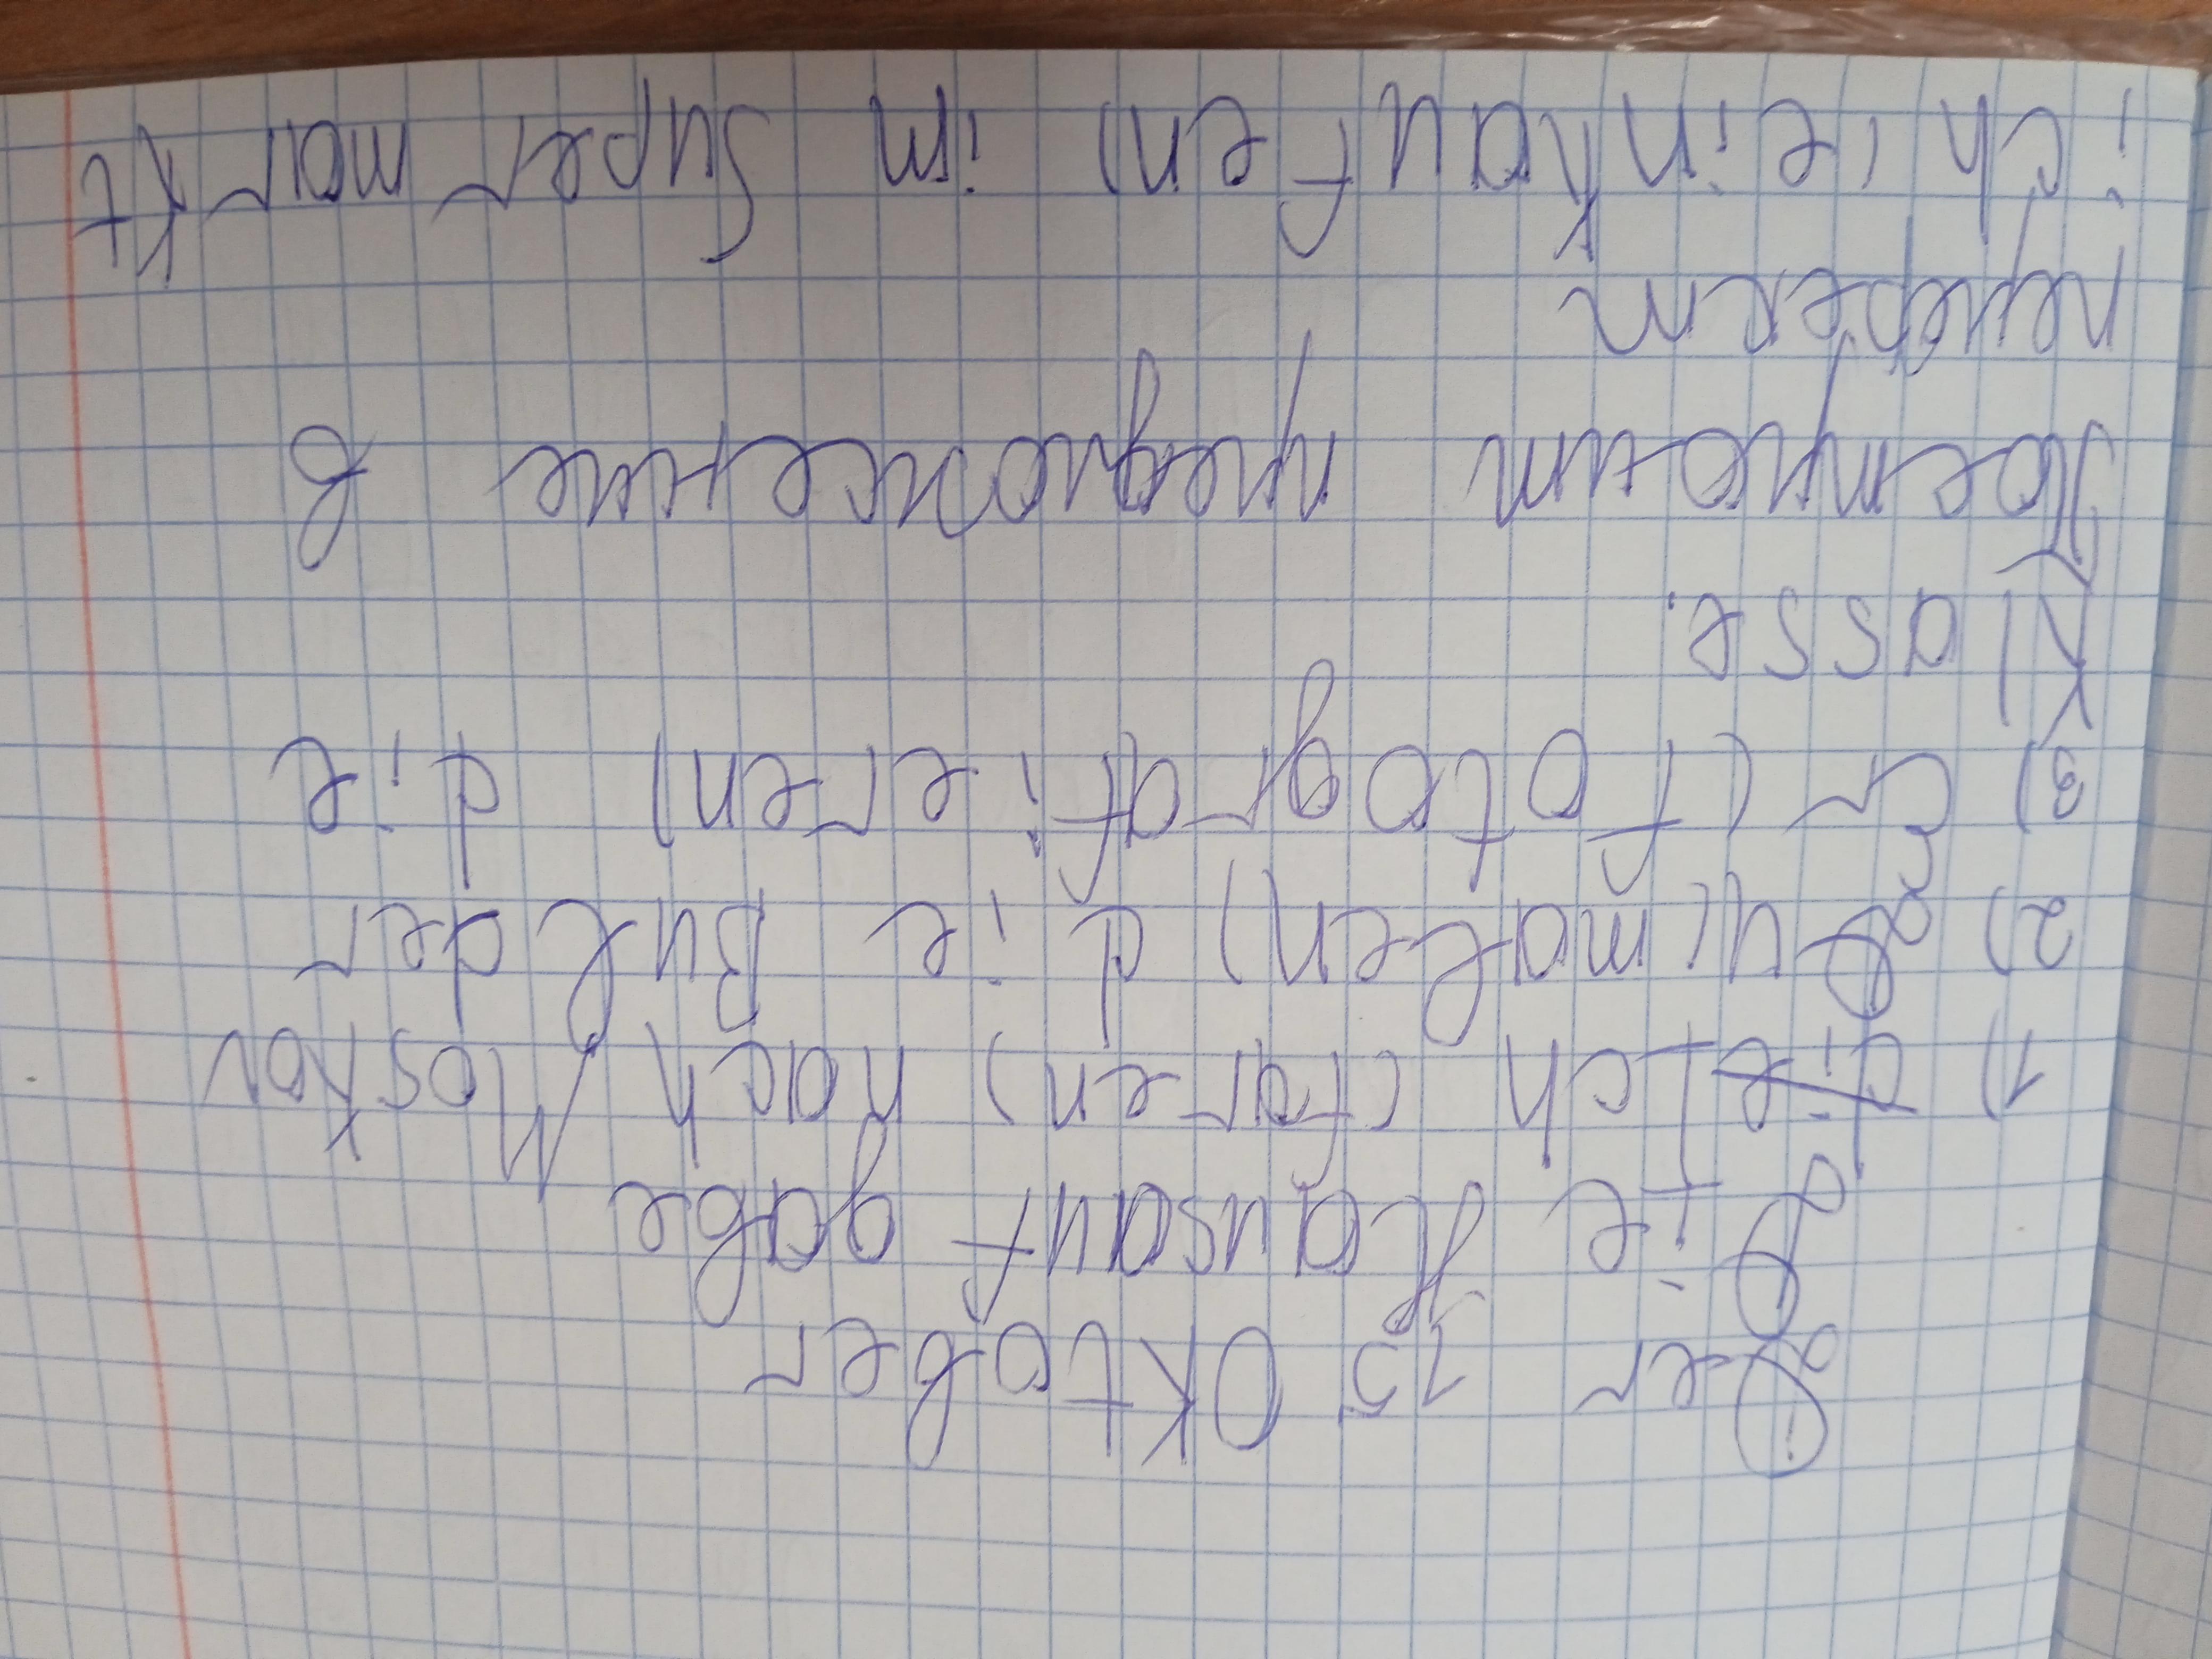 Der 15 Oktober
Die Hausauf gabe
1) die Ich (faren) nach Moskau
2) Du (malen) die Bulder
3) Er (fotografieren) die
Klasse.
Построит предложение в
перфект
ich (einkaufen) im Supermarkt